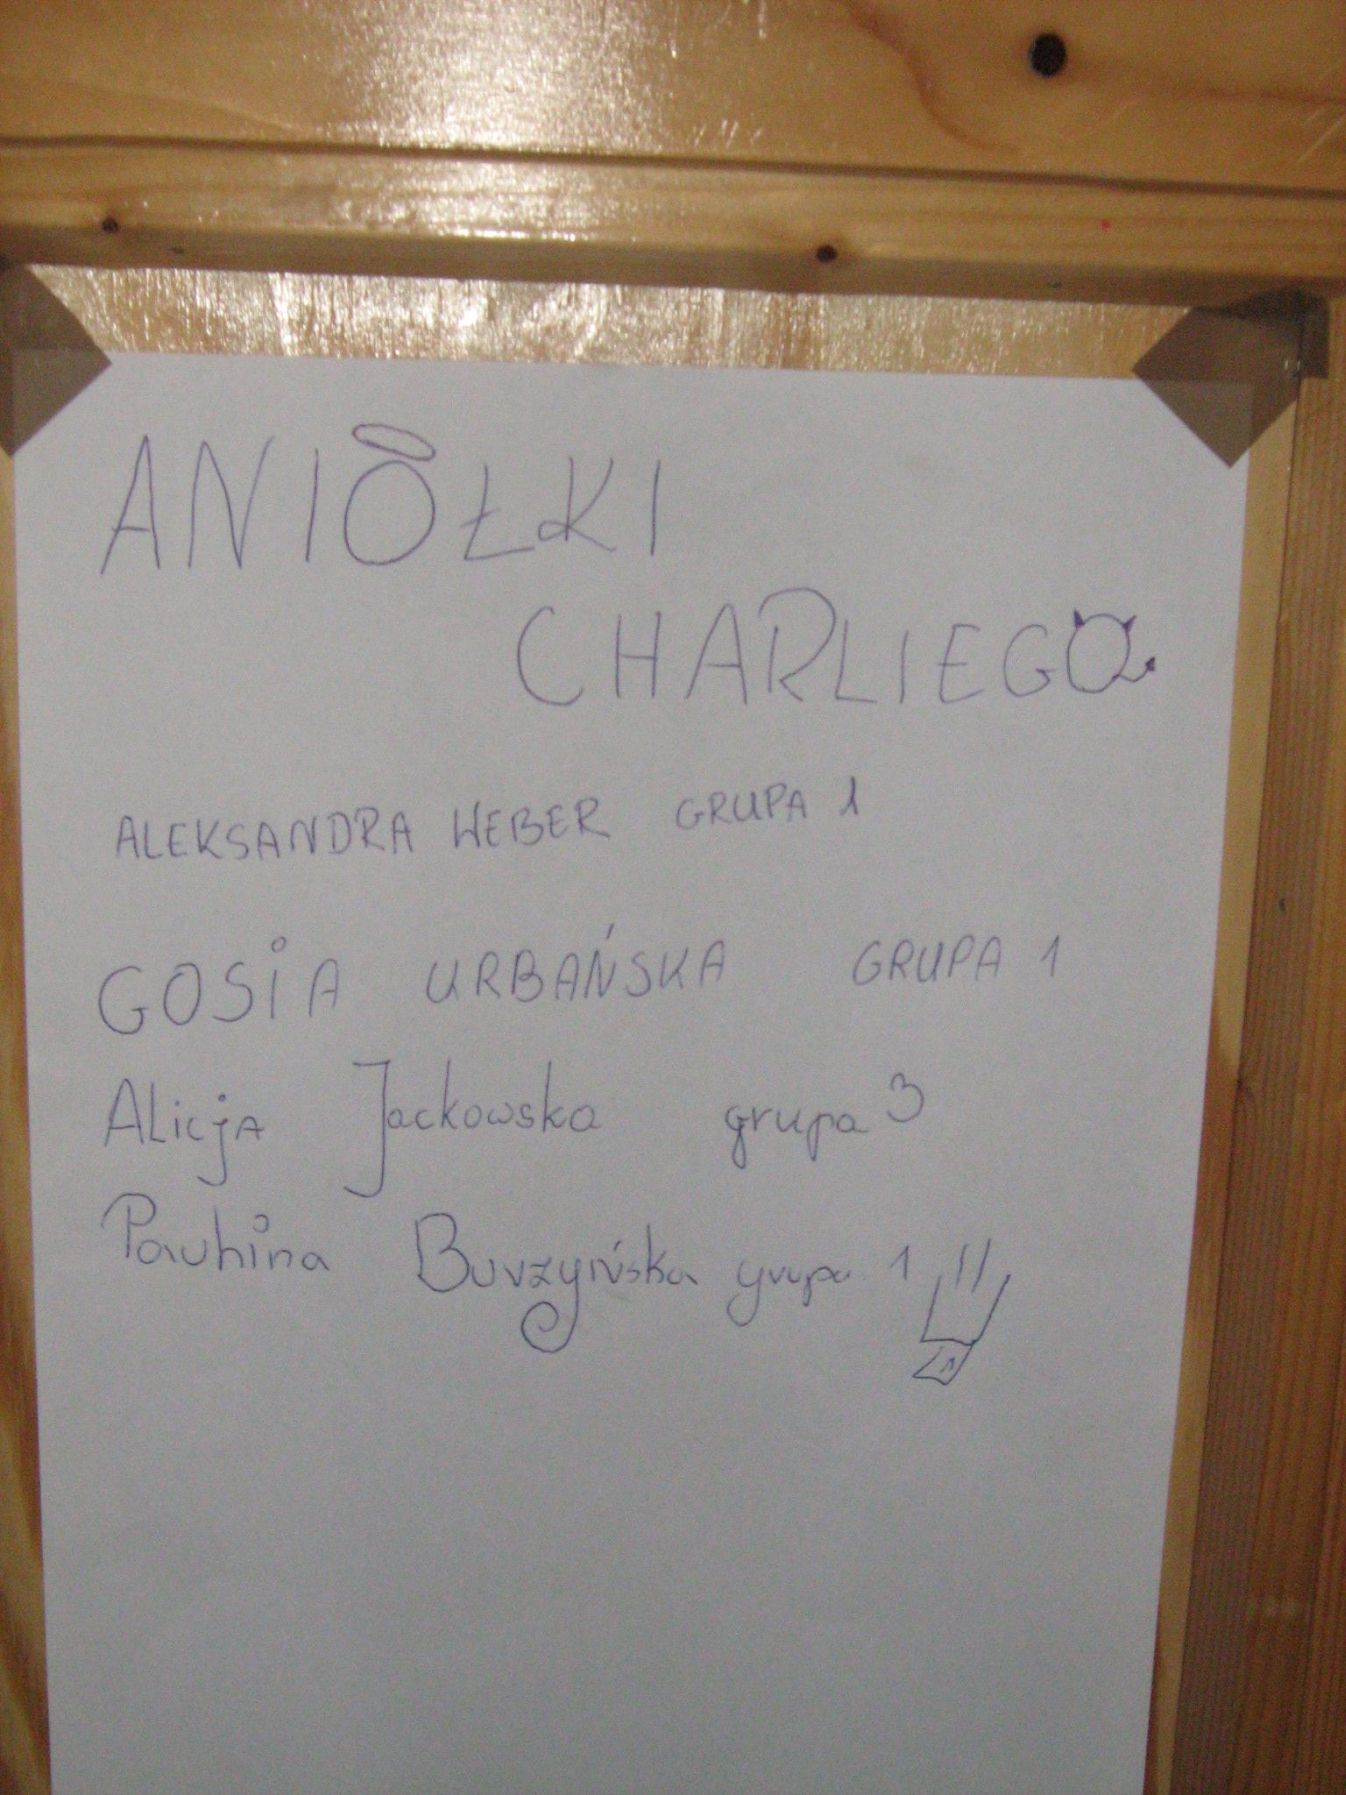 ANIOŁKI
CHARLIEGO
ALEKSANDRA WEBER GRUPA 1
GOSiA URBAŃSKA GRUPA 1
ALicja Jackowska grupa 3
Paulina Burzyńska grupa 1